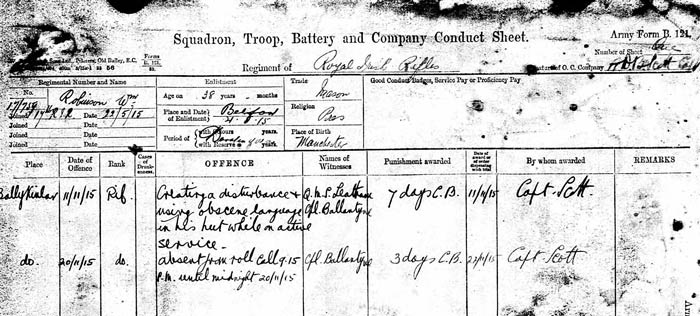 Squadron, Troop, Battery and Company Conduct Sheet.
Army Form B. 121.
Forms
B. 121.
Number of Sheet One
Regiment of Royal Irish Rifles
Signature of O. C. Company
Regimental Number and Name
Enlistment
Trade
Good Conduct Badges, Service Pay or Proficiency Pay
No.
Robinson Wm
Age on 38 years - months
Mason
Joined 17th R.I.R Date 22/5/15
Place and Date of Enlistment Belfast
Religion
Pres
Joined Date
Joined Date
Period of with Colours years.
with Reserve years.
Place of Birth
Manchester
Joined Date
Place
Date of Offence
Rank
Cases of Drunkenness.
OFFENCE
Names of Witnesses
Punishment awarded
Date of award or of order dispensing with trial
By whom awarded
REMARKS
Ballykinlar 11/11/15 Rif. Creating a disturbance & Q.M.S. 7 days C.B. 11/11/15 Capt Scott.
using obscene language Cpl. Ballantyne
in his hut while on active
service -
do. 20/11/15 do. absent from roll call 9.15 Cpl. Ballantyne 3 days C.B. Capt Scott
P.M. until midnight 20/11/15